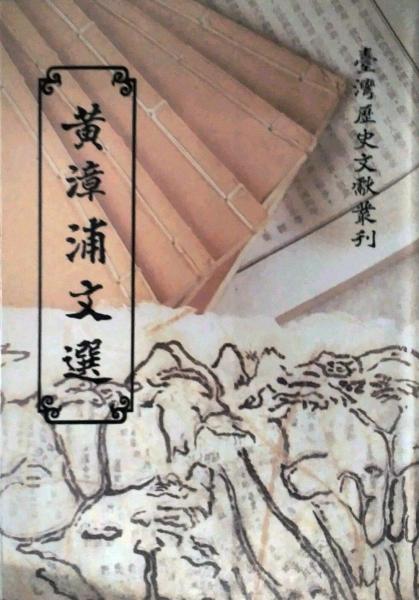 臺灣歷史文獻叢刊
黃漳浦文選